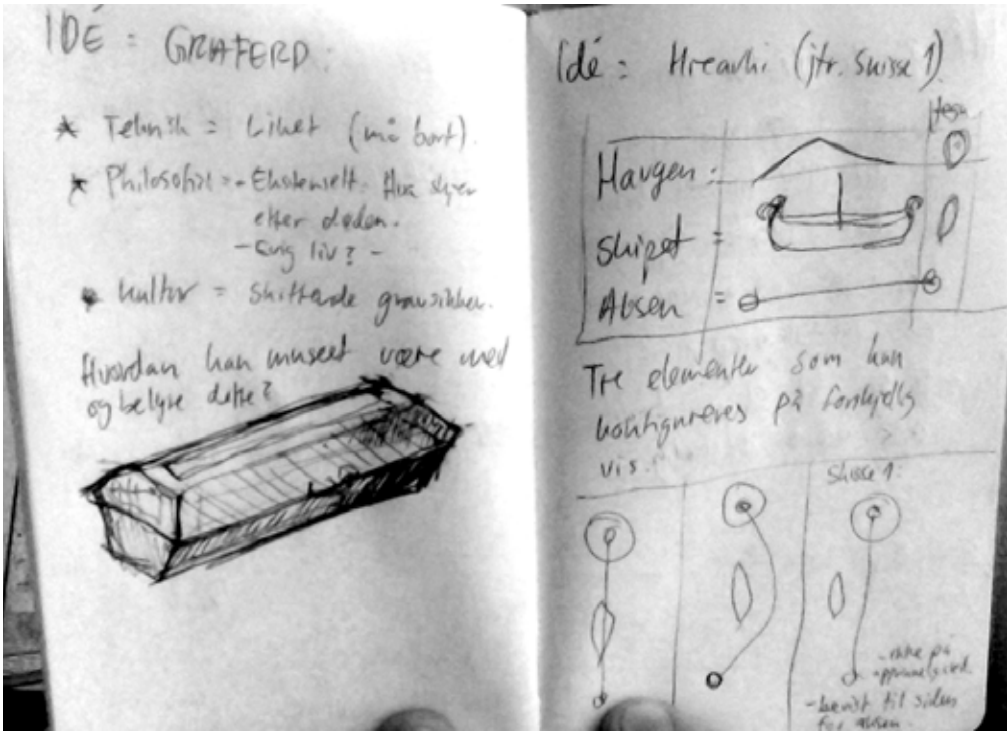 IDÉ = GRAFERD:
* Teknisk = Liket (må bort).
* Philosofisk = - Eksistensielt: Hva skjer
etter døden.
- Evig liv? -
* Kultur = Skiftende gravsikker.
Hvordan kan museet være med
og belyse dette?
Idé = (jfr. Skisse 1)
tegn
Haugen:
Skipet =
Aksen =
Tre elementer som kan
konfigureres på forskjellig
vis.
Skisse 1:
på
til siden
for aksen.